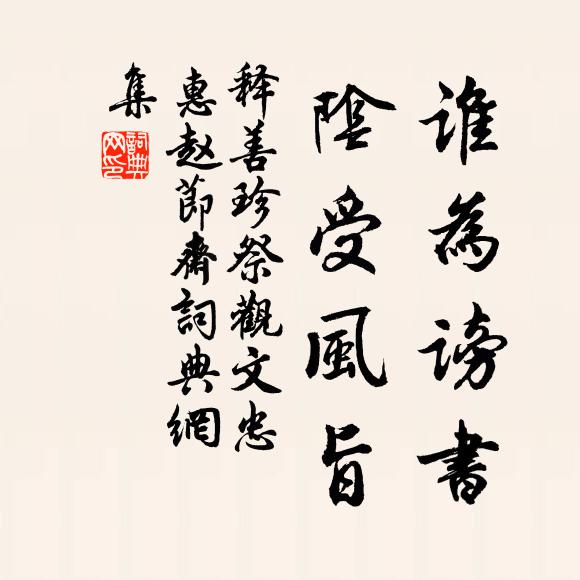 谁為謗書
陰受風旨
释善珍祭觀文忠
惠赵節齋詞典網
集
詞典网印